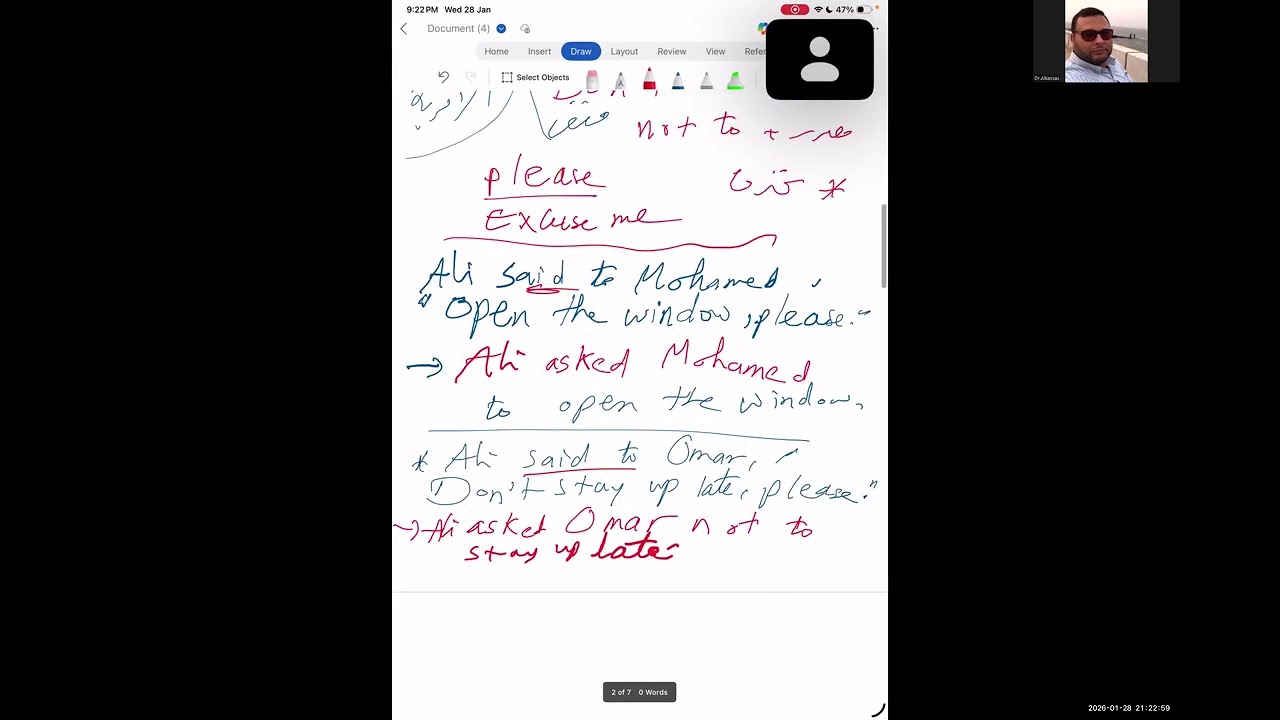 9:22 PM Wed 28 Jan 47%
Document (4)
Home Insert Draw Layout Review View Refer
Select Objects
Dr.Alkassas
not to +
please
تحذف *
Excuse me
Ali said to Mohamed,
"Open the window, please."
→ Ali asked Mohamed
to open the window.
* Ali said to Omar,
Don't stay up late, please."
→ Ali asked Omar not to
stay up late
2 of 7 0 Words
2026-01-28 21:22:59